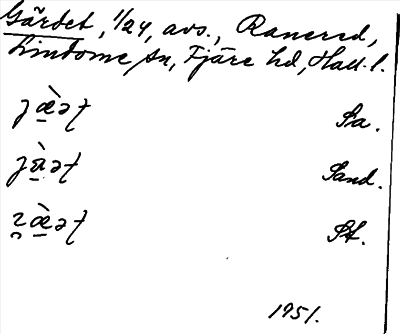 Gärdet, 1/24, avs., Ranered,
Lindome sn, Fjäre hd, Hall. l.
Sa.
Sand.
St.
1951.